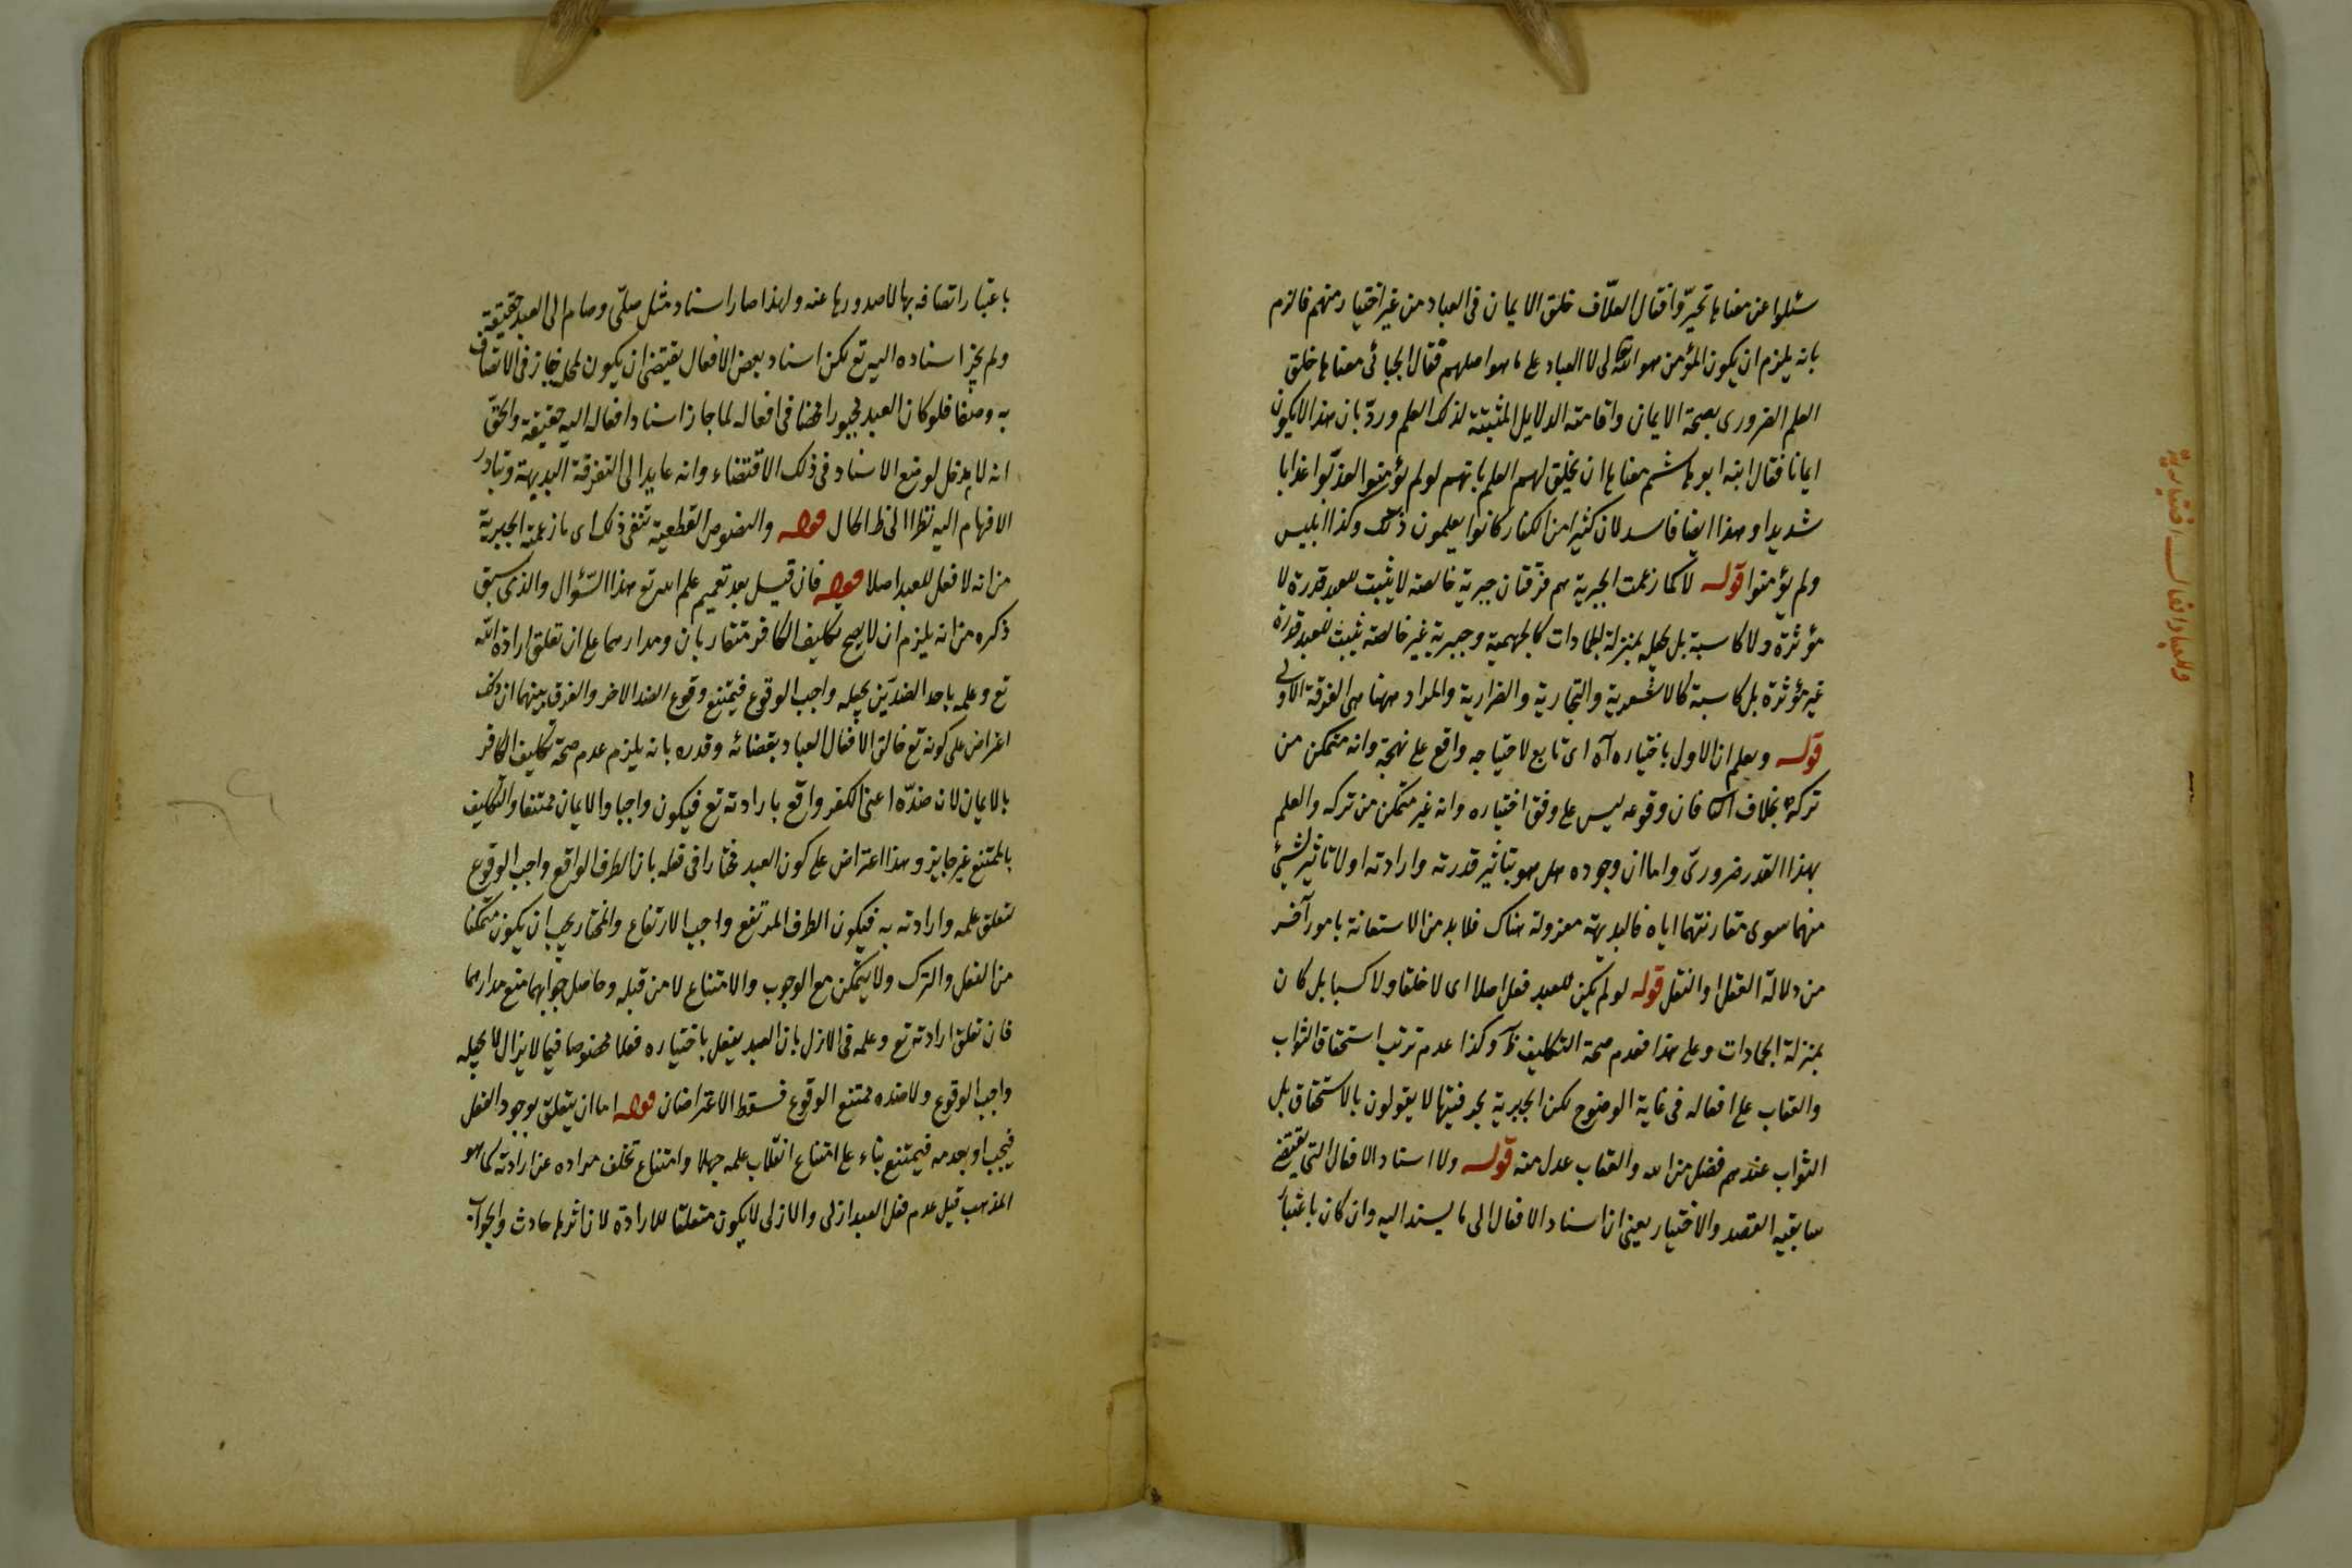 سئلوا عن معناها تحيّروا فقال العلّاف خلق الايمان فى العباد من غير اختيار منهم فالزم
بانه يلزم ان يكون المؤمن هو الله تعالى لا العباد على ما هو اصلهم فقال الجبائى معناها خلق
العلم الضرورى بصحة الايمان واقامته الدلايل المثبتة لذلك العلم وردّ بان هذا لا يكون
ايمانا فقال ابنه ابو هاشم معناها ان يخلق لهم العلم بانهم لو لم يؤمنوا لعذّبوا عذابا
شديدا وهذا ايضا فاسد لان كثيرا من الكفار كانوا يعلمون ذلك وكذا ابليس
ولم يؤمنوا قوله لا كما زعمت الجبرية هم فرّقتان جبرية خالصة لا يثبت للعبد قدرة لا
مؤثرة ولا كاسبة بل يجعله بمنزلة الجمادات كالجهمية وجبرية غير خالصة يثبت للعبد قدرة
غير مؤثرة بل كاسبة كالاشعرية والنجارية والضرارية والمراد ههنا هى الفرقة الاولى
قوله ويعلم ان الاول باختياره آه اى تابع لاحتياجه واقع على نهجة وانه متمكن من
تركه بخلاف الثا فان وقوعه ليس على وفق اختياره وانه غير متمكن من تركه والعلم
بهذا القدر ضرورىّ واما ان وجوده هل هو بتأثير قدرته وارادته او لا تاثير لشئ
منهما سوى مقارنتهما اياه فالبديهة معزولة هناك فلا بد من الاستعانة بامور آخر
من دلالة العقل او النقل قوله لو لم يكن للعبد فعل اصلا اى لا خلقا ولا كسبا بل كان
بمنزلة الجمادات وعلى هذا فعدم صحة التكليف ظ وكذا عدم ترتب استحقاق الثواب
والعقاب على افعاله فى غاية الوضوح لكن الجبرية بحرفيتها لا يقولون بالاستحقاق بل
الثواب عندهم فضل من الله والعقاب عدل منه قوله ولا اسناد الافعال التى يقتضى
سابقية القصد والاختيار يعنى ان اسناد الافعال الى ما يسند اليه وان كان باعتبار
وللعباد افعال اختيارية
باعتبار اتصافه بها لا صدورها عنه ولهذا صار اسناد مثل صلّى وصام الى العبد حقيقة
ولم يجز اسناده اليه تع لكن اسناد بعض الافعال يقتضى ان يكون لمحل جاز فى الاتصاف
به وصفا فلو كان العبد مجبورا محضا فى افعاله لما جاز اسناد افعاله اليه حقيقة والحقّ
انه لا مدخل لوضع الاسناد فى ذلك الاقتضاء وانه عايد الى التفرقة البديهة وتبادر
الافهام اليه نظرا الى ظ الحال قوله والنصوص القطعية تنفى ذلك اى ما زعمته الجبرية
من انه لا فعل للعبد اصلا قوله فان قيل بعد تعميم علم الله تع هذا السّؤال والذى سبق
ذكره من انه يلزم ان لا يصح تكليف الكافر متقاربان ومدارهما على ان تعلق ارادة الله
تع وعلمه باحد الضدّين يجعله واجب الوقوع فيمتنع وقوع الضد الاخر والفرق بينهما ان ذلك
اعتراض على كونه تع خالق الافعال العباد بقضائه وقدره بانه يلزم عدم صحة تكليف الكافر
بالايمان لان ضدّه اعنى الكفر واقع بارادته تع فيكون واجبا والايمان ممتنعا والتكليف
بالممتنع غير جايز وهذا اعتراض على كون العبد مختارا فى فعله بان الطرف الواقع واجب الوقوع
لتعلق علمه وارادته به فيكون الطرف المرتفع واجب الارتفاع والمختار يجب ان يكون متمكنا
من الفعل والترك ولا يتمكن مع الوجوب والامتناع لا من قبله وحاصل جوابهما منع مدارهما
فان تعلق ارادته تع وعلمه فى الازل بان العبد يفعل باختياره فعلا مخصوصا فيما لا يزال لا يجعله
واجب الوقوع ولا ضده ممتنع الوقوع فسقط الاعتراضان قوله اما ان يتعلق بوجود الفعل
فيجب او بعدمه فيمتنع بناء على امتناع انقلاب علمه جهلا وامتناع تخلف مراده عن ارادته كما هو
المذهب قيل عدم فعل العبد ازلى والازلى لا يكون متعلقا للارادة لان اثرها حادث والجواب